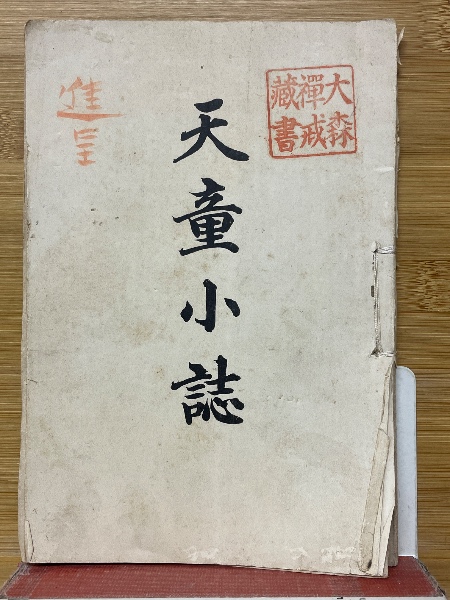 大森
禪戒
藏書
天童小誌
進呈